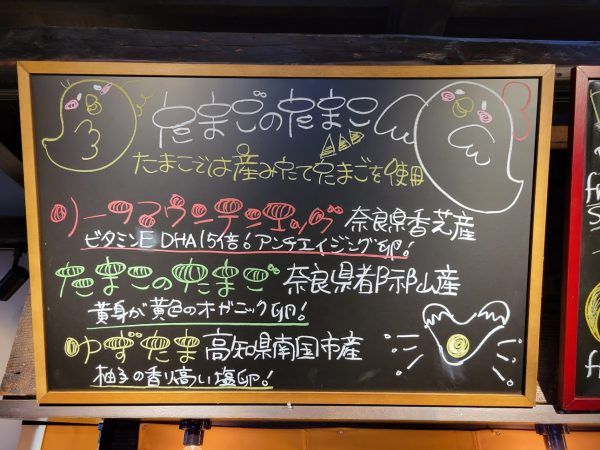 たまごのたまこ
たまこでは産みたてたまごを使用
奈良県香芝産
ビタミンE DHA15倍!アンチエイジング卵!
たまこのたまご 奈良県都祁山産
黄身が黄色のオガニック卵!
ゆずたま 高知県南国市産
柚子の香り高い塩卵!